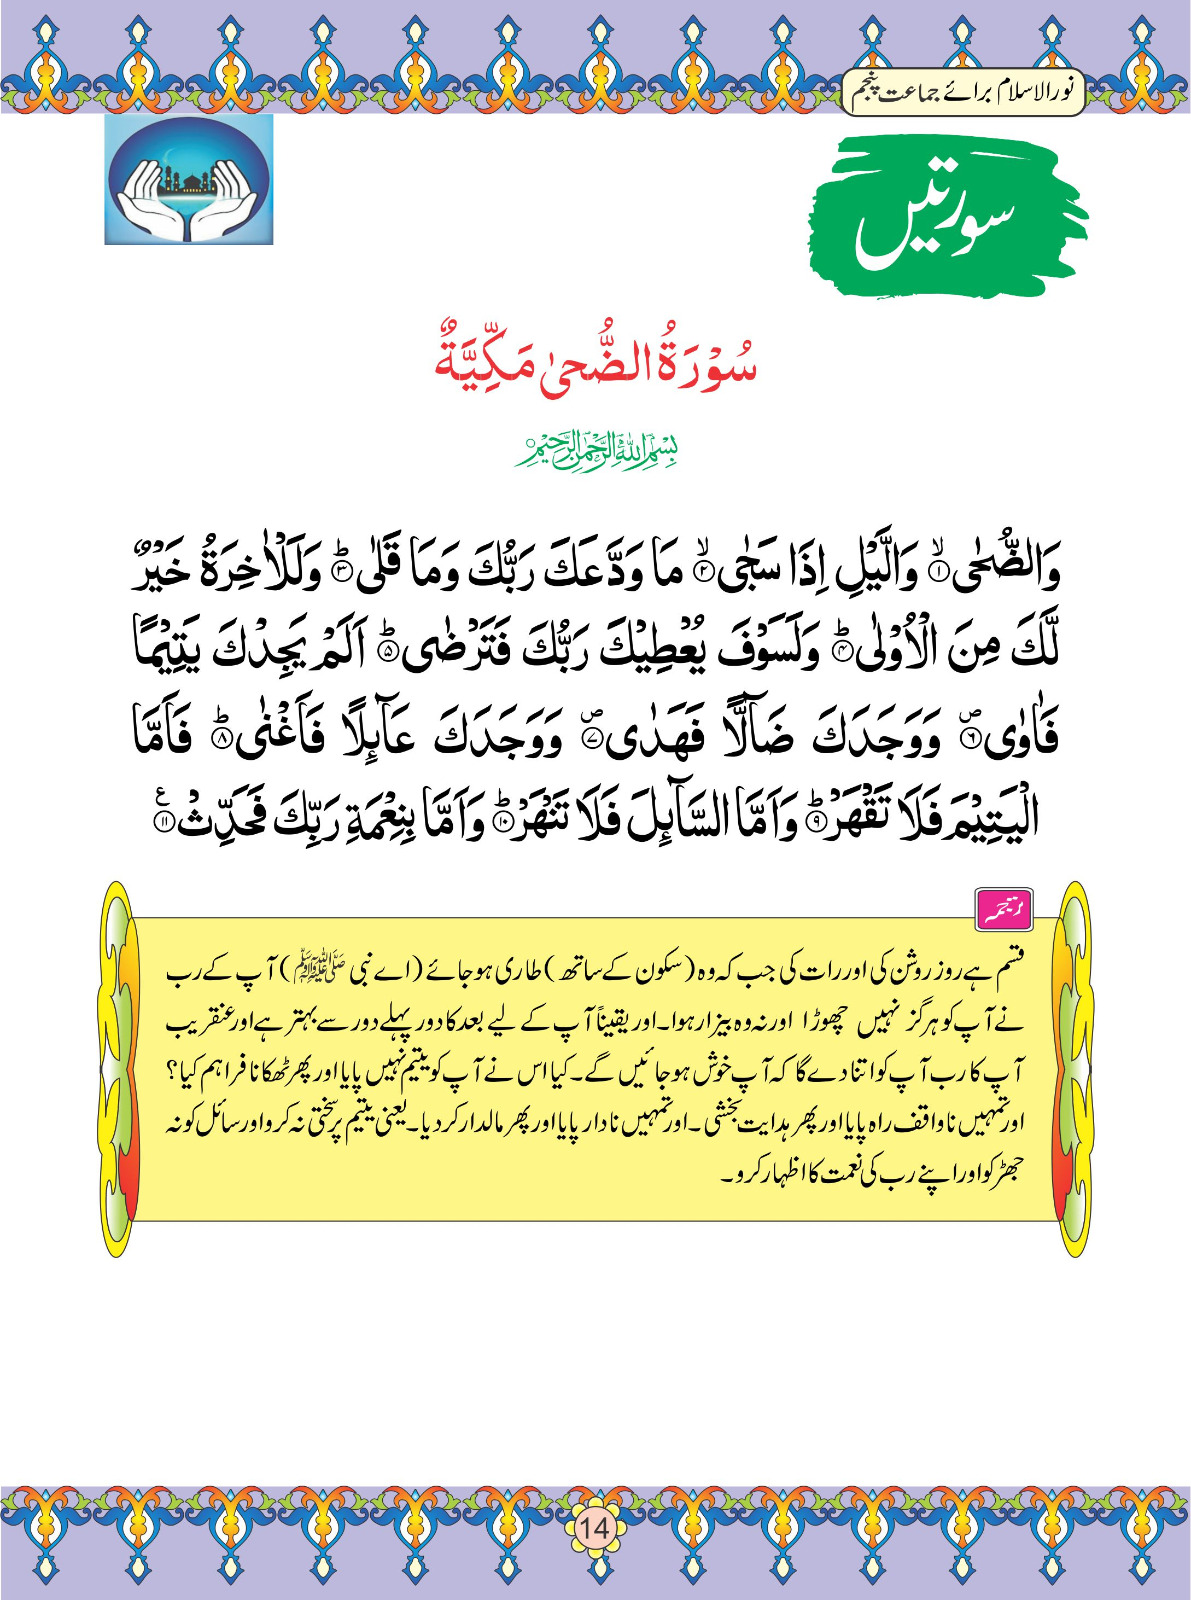 نور الاسلام برائے جماعت پنجم
سورتیں
سُوْرَةُ الضُّحىٰ مَكِّيَّةٌ
بِسْمِ اللهِ الرَّحْمٰنِ الرَّحِيْمِ
وَالضُّحٰى ۙ﴿۱﴾ وَالَّيْلِ اِذَا سَجٰى ۙ﴿۲﴾ مَا وَدَّعَكَ رَبُّكَ وَمَا قَلٰى ؕ﴿۳﴾ وَلَلْاٰخِرَةُ خَيْرٌ
لَّكَ مِنَ الْاُوْلٰى ؕ﴿۴﴾ وَلَسَوْفَ يُعْطِيْكَ رَبُّكَ فَتَرْضٰى ؕ﴿۵﴾ اَلَمْ يَجِدْكَ يَتِيْمًا
فَاٰوٰى ۪﴿۶﴾ وَوَجَدَكَ ضَآلًّا فَهَدٰى ۪﴿۷﴾ وَوَجَدَكَ عَآئِلًا فَاَغْنٰى ؕ﴿۸﴾ فَاَمَّا
الْيَتِيْمَ فَلَا تَقْهَرْ ؕ﴿۹﴾ وَاَمَّا السَّآئِلَ فَلَا تَنْهَرْ ؕ﴿۱۰﴾ وَاَمَّا بِنِعْمَةِ رَبِّكَ فَحَدِّثْ ﴿۱۱﴾ ع
ترجمہ
قسم ہے روز روشن کی اور رات کی جب کہ وہ (سکون کے ساتھ) طاری ہو جائے (اے نبی ﷺ) آپ کے رب
نے آپ کو ہرگز نہیں چھوڑا اور نہ وہ بیزار ہوا۔ اور یقیناً آپ کے لیے بعد کا دور پہلے دور سے بہتر ہے اور عنقریب
آپ کا رب آپ کو اتنا دے گا کہ آپ خوش ہو جائیں گے۔ کیا اس نے آپ کو یتیم نہیں پایا اور پھر ٹھکانا فراہم کیا؟
اور تمہیں ناواقف راہ پایا اور پھر ہدایت بخشی۔ اور تمہیں نادار پایا اور پھر مالدار کر دیا۔ یعنی یتیم پر سختی نہ کرو اور سائل کو نہ
جھڑکو اور اپنے رب کی نعمت کا اظہار کرو۔
14